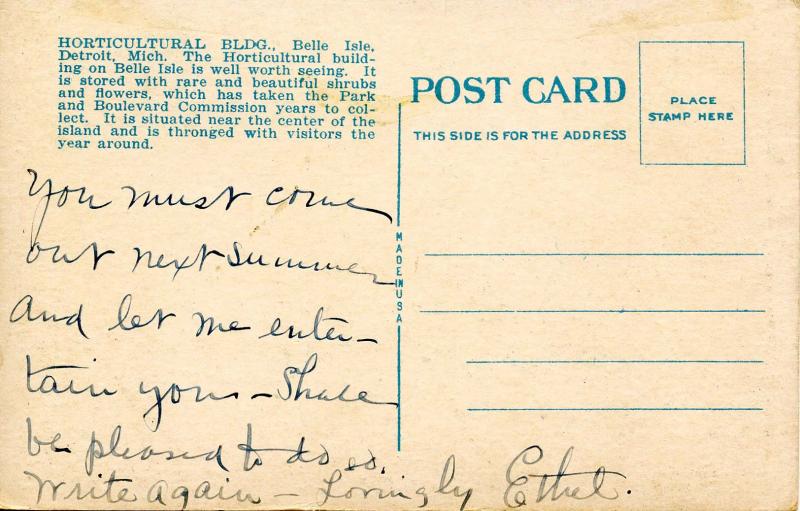 HORTICULTURAL BLDG., Belle Isle,
Detroit, Mich. The Horticultural build-
ing on Belle Isle is well worth seeing. It
is stored with rare and beautiful shrubs
and flowers, which has taken the Park
and Boulevard Commission years to col-
lect. It is situated near the center of the
island and is thronged with visitors the
year around.
POST CARD
THIS SIDE IS FOR THE ADDRESS
PLACE
STAMP HERE
MADE IN USA
You must come
out next summer
and let me enter-
tain you - Shall
be pleased to do so.
Write again - Lovingly Ethel.